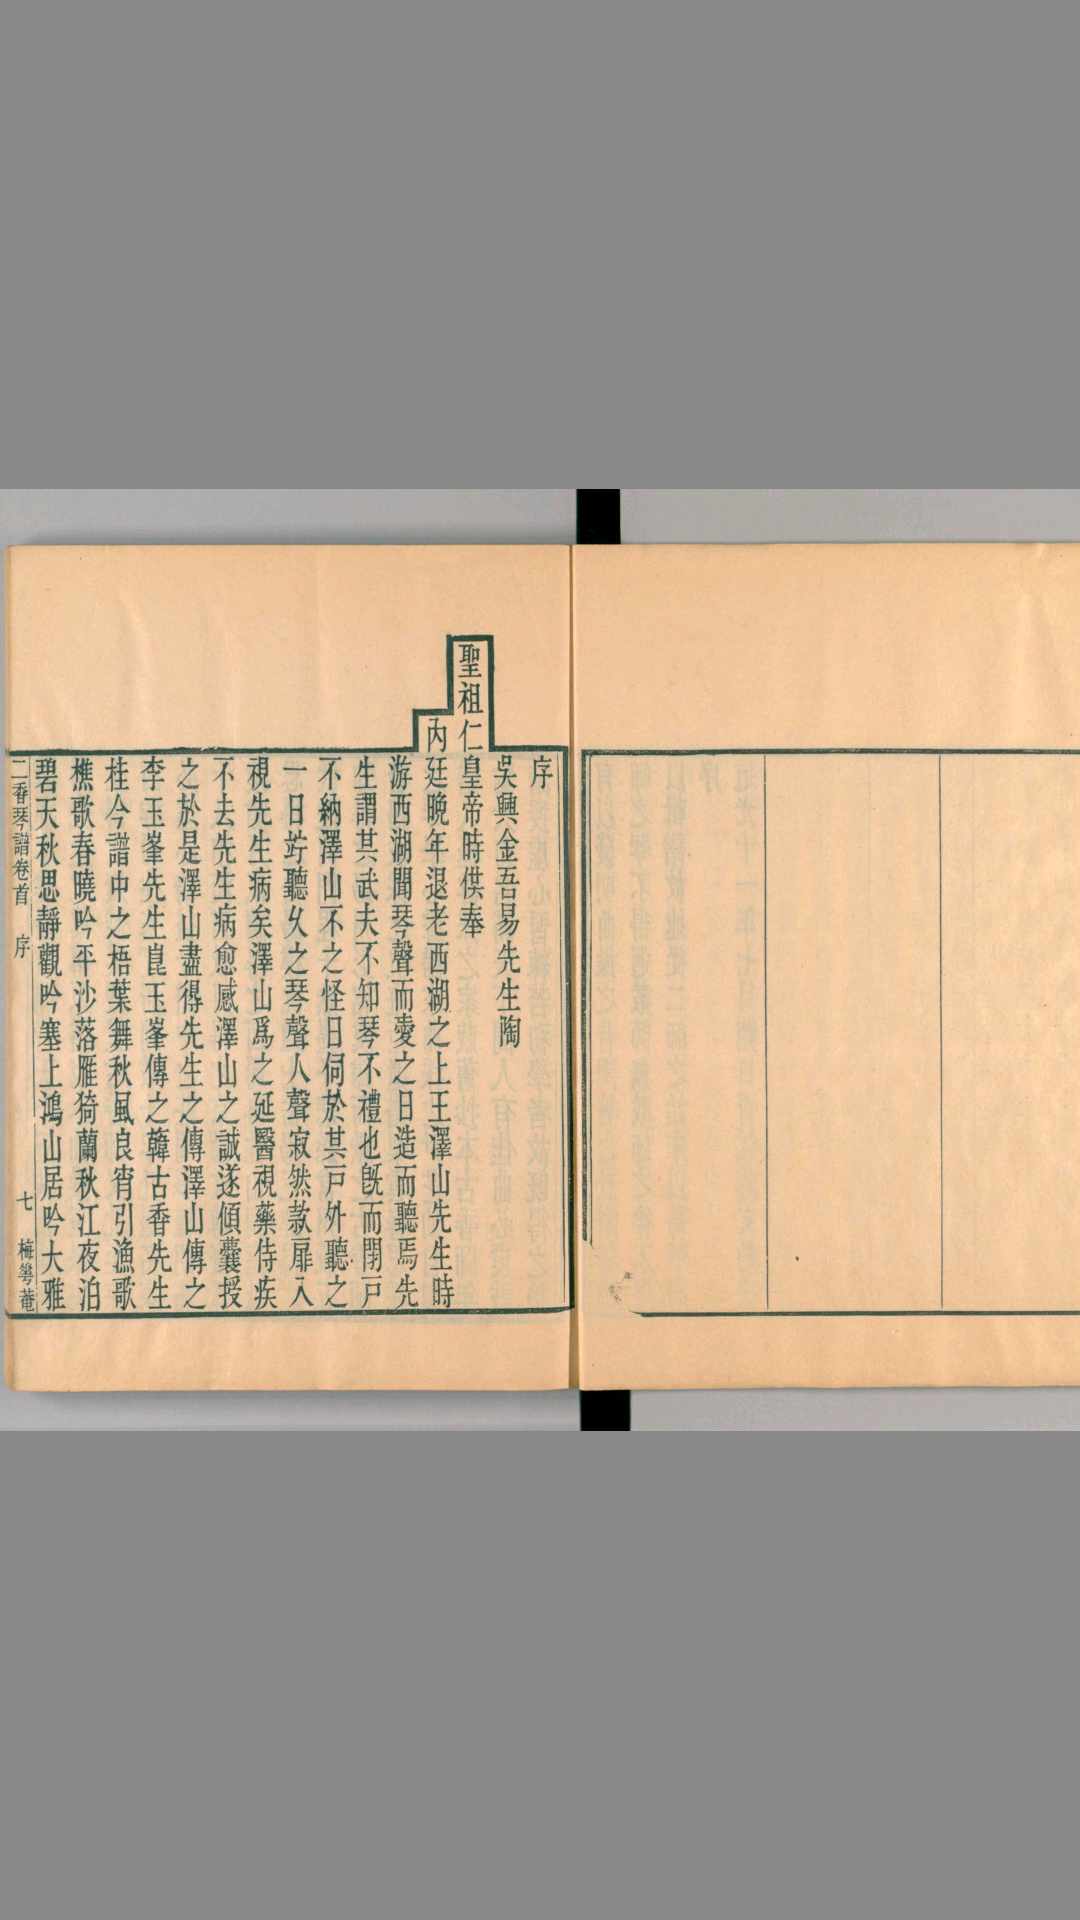 序
吳興金吾易先生陶
聖祖仁皇帝時供奉
內廷晚年退老西湖之上王澤山先生時
游西湖聞琴聲而愛之日造而聽焉先
生謂其武夫不知琴不禮也旣而閉戸
不納澤山不之怪日伺於其戸外聽之
一日竚聽久之琴聲人聲寂然款扉入
視先生病矣澤山爲之延醫視藥侍疾
不去先生病愈感澤山之誠遂傾囊授
之於是澤山盡得先生之傳澤山傳之
李玉峯先生崑玉峯傳之韓古香先生
桂今譜中之梧葉舞秋風良宵引漁歌
樵歌春曉吟平沙落雁猗蘭秋江夜泊
碧天秋思靜觀吟塞上鴻山居吟大雅
二香琴譜卷首 序 七 梅華菴